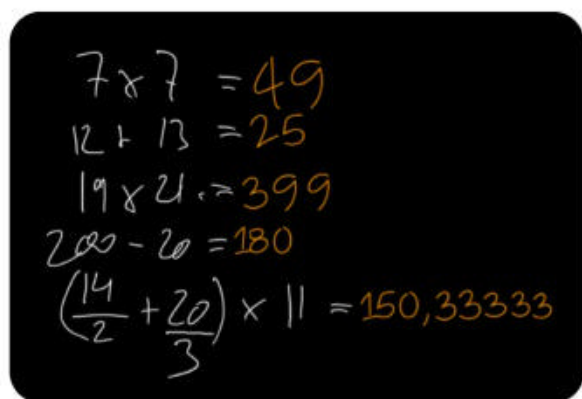 7 x 7 = 49
12 + 13 = 25
19 x 21 = 399
200 - 20 = 180
(14/2 + 20/3) x 11 = 150,33333